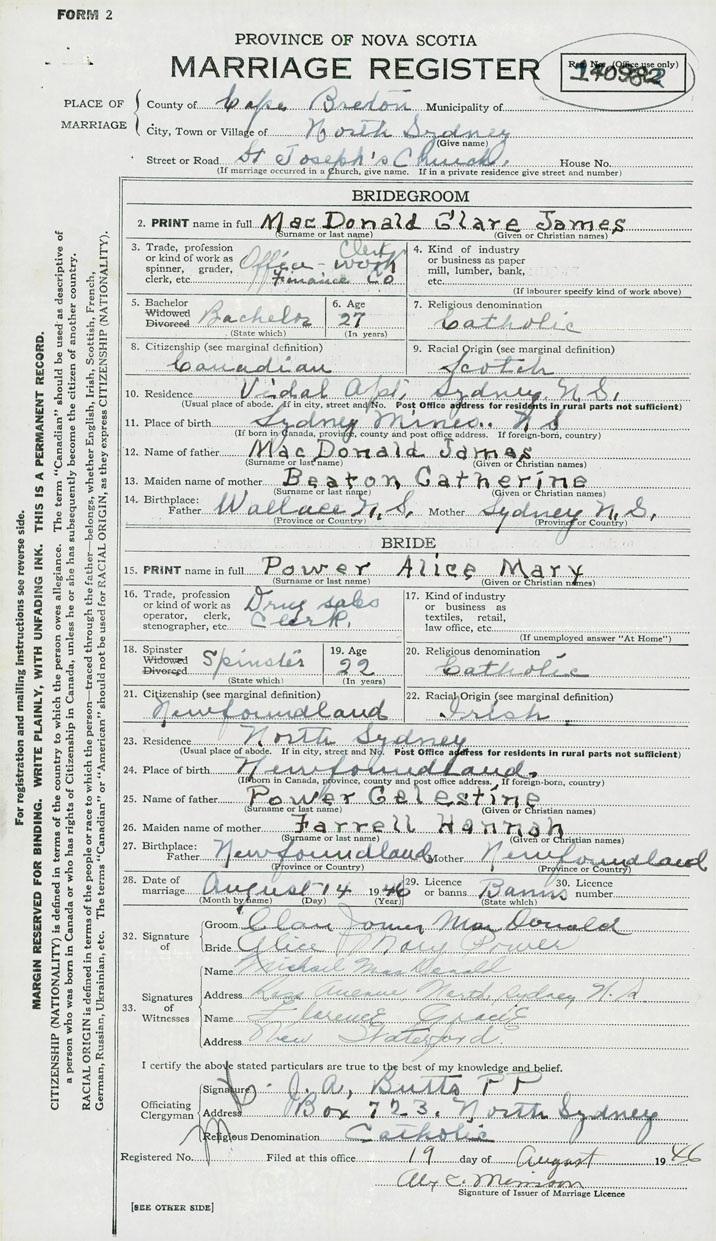 FORM 2
PROVINCE OF NOVA SCOTIA
MARRIAGE REGISTER
Reg. No. (Office use only)
PLACE OF MARRIAGE
County of Cape Breton Municipality of
City, Town or Village of North Sydney
(Give name)
Street or Road St Joseph's Church. House No.
(If marriage occurred in a Church, give name. If in a private residence give street and number)
BRIDEGROOM
2. PRINT name in full MacDonald Clare James
(Surname or last name) (Given or Christian names)
3. Trade, profession or kind of work as spinner, grader, clerk, etc. Office - Work Clerk Finance Co
4. Kind of industry or business as paper mill, lumber, bank, etc.
(If labourer specify kind of work above)
5. Bachelor Widowed Divorced Bachelor
(State which)
6. Age 27
(In years)
7. Religious denomination Catholic
8. Citizenship (see marginal definition) Canadian
9. Racial Origin (see marginal definition) Scotch
10. Residence Vidal Apt. Sydney N.S.
(Usual place of abode. If in city, street and No. Post Office address for residents in rural parts not sufficient)
11. Place of birth Sydney Mines.. N S
(If born in Canada, province, county and post office address. If foreign-born, country)
12. Name of father MacDonald James
(Surname or last name) (Given or Christian names)
13. Maiden name of mother Beaton Catherine
(Surname or last name) (Given or Christian names)
14. Birthplace: Father Wallace N.S. Mother Sydney N.S.
(Province or Country) (Province or Country)
BRIDE
15. PRINT name in full Power Alice Mary
(Surname or last name) (Given or Christian names)
16. Trade, profession or kind of work as operator, clerk, stenographer, etc. Drug sales Clerk.
17. Kind of industry or business as textiles, retail, law office, etc.
(If unemployed answer "At Home")
18. Spinster Widowed Divorced Spinster
(State which)
19. Age 22
(In years)
20. Religious denomination Catholic
21. Citizenship (see marginal definition) Newfoundland
22. Racial Origin (see marginal definition) Irish.
23. Residence North Sydney
(Usual place of abode. If in city, street and No. Post Office address for residents in rural parts not sufficient)
24. Place of birth Newfoundland.
(If born in Canada, province, county and post office address. If foreign-born, country)
25. Name of father Power Celestine
(Surname or last name) (Given or Christian names)
26. Maiden name of mother Farrell Hannah
(Surname or last name) (Given or Christian names)
27. Birthplace: Father Newfoundland Mother Newfoundland
(Province or Country) (Province or Country)
28. Date of marriage August 14 1946
(Month by name) (Day) (Year)
29. Licence or banns Banns
(State which)
30. Licence number
32. Signature of
Groom Clare James MacDonald
Bride Alice Mary Power
33. Signatures of Witnesses
Name Michael MacDonald
Address Avenue North Sydney, N.S.
Name Florence Gracie
Address New Waterford.
I certify the above stated particulars are true to the best of my knowledge and belief.
Officiating Clergyman
Signature J. A. Butts P P
Address Box 723. North Sydney
Religious Denomination Catholic
Registered No. Filed at this office 19 day of August 1946
Alex C.
Signature of Issuer of Marriage Licence
[SEE OTHER SIDE]
For registration and mailing instructions see reverse side.
MARGIN RESERVED FOR BINDING. WRITE PLAINLY, WITH UNFADING INK. THIS IS A PERMANENT RECORD.
CITIZENSHIP (NATIONALITY) is defined in terms of the country to which the person owes allegiance. The term "Canadian" should be used as descriptive of
a person who was born in Canada or who has rights of Citizenship in Canada, unless he or she has subsequently become the citizen of another country.
RACIAL ORIGIN is defined in terms of the people or race to which the person—traced through the father—belongs, whether English, Irish, Scottish, French,
German, Russian, Ukrainian, etc. The terms "Canadian" or "American" should not be used for RACIAL ORIGIN, as they express CITIZENSHIP (NATIONALITY).